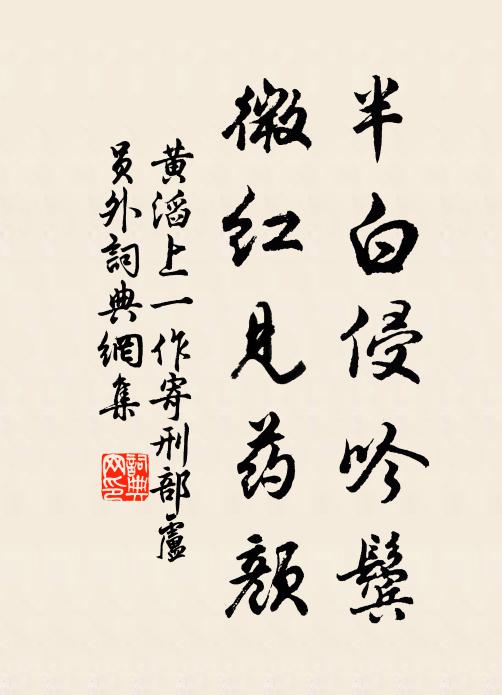 半白侵吟鬓
微红见药颜
黄滔上一作寄刑部盧
员外詞典網集
詞典
网印